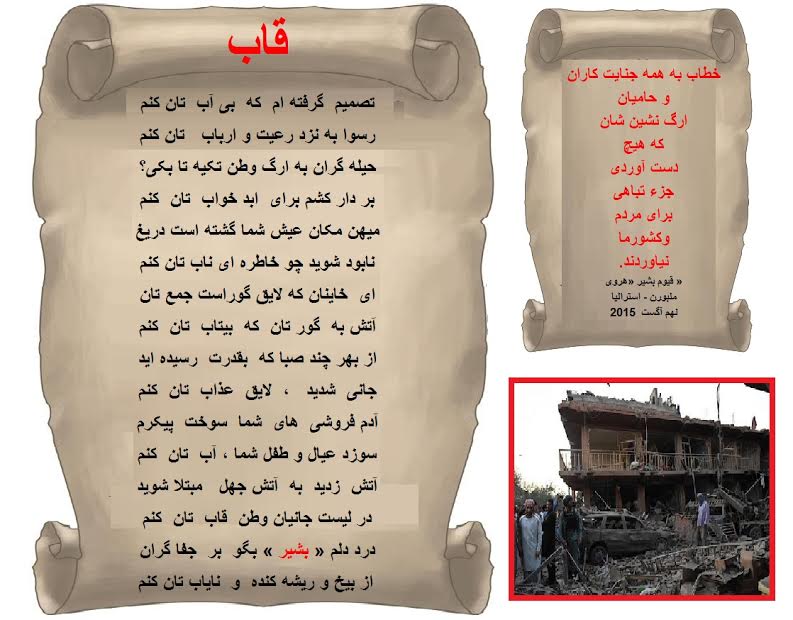 قاب
تصمیم گرفته ام که بی آب تان کنم
رسوا به نزد رعیت و ارباب تان کنم
حیله گران به ارگ وطن تکیه تا بکی؟
بر دار کشم برای ابد خواب تان کنم
میهن مکان عیش شما گشته است دریغ
نابود شوید چو خاطره ای ناب تان کنم
ای خاینان که لایق گوراست جمع تان
آتش به گور تان که بیتاب تان کنم
از بهر چند صبا که بقدرت رسیده اید
جانی شدید ، لایق عذاب تان کنم
آدم فروشی های شما سوخت پیکرم
سوزد عیال و طفل شما ، آب تان کنم
آتش زدید به آتش جهل مبتلا شوید
در لیست جانیان وطن قاب تان کنم
درد دلم « بشیر » بگو بر جفا گران
از بیخ و ریشه کنده و نایاب تان کنم
خطاب به همه جنایت کاران
و حامیان
ارگ نشین شان
که هیچ
دست آوردی
جزء تباهی
برای مردم
وکشورما
نیاوردند.
« قیوم بشیر «هروی
ملبورن - استرالیا
نهم آگست 2015